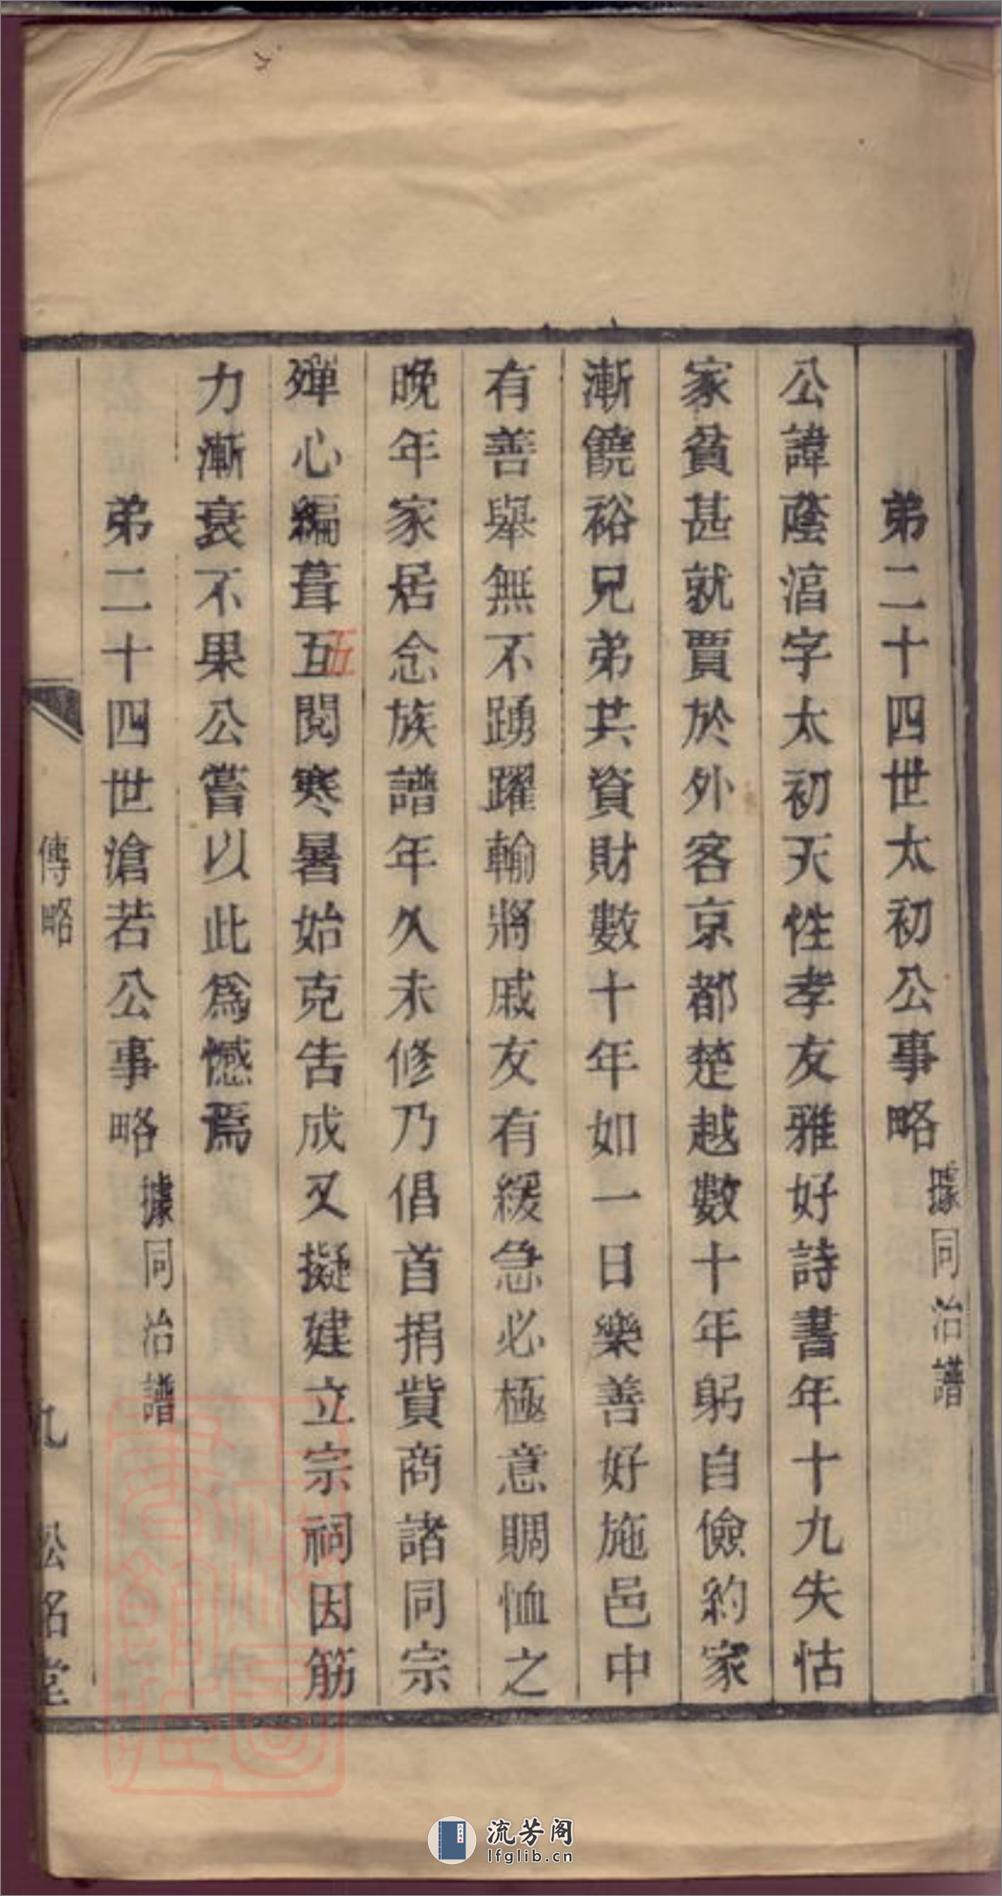 弟二十四世太初公事略據同治譜
公諱蔭涫字太初天性孝友雅好詩書年十九失怙
家貧甚就賈於外客京都楚越數十年躬自儉約家
漸饒裕兄弟共資財數十年如一日樂善好施邑中
有善舉無不踴躍輸將戚友有緩急必極意賙恤之
晚年家居念族譜年久未修乃倡首捐貲商諸同宗
殫心編葺五互閱寒暑始克告成又擬建立宗祠因筋
力漸衰不果公嘗以此為憾焉
弟二十四世滄若公事略據同治譜
傳略
九
堂
流芳阁
lfglib.cn